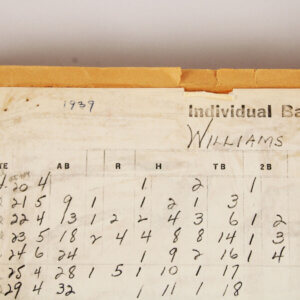 1939
Individual Ba
WILLIAMS
TE AB R H TB 2B
20 4 1 2 1
21 5 9 1 1 2 1 3
22 4 13 1 2 2 4 3 6 1 2
23 5 18 2 4 4 8 8 14 1 3
24 6 24 1 9 2 16 1 4
25 4 28 1 5 1 10 1 17
29 4 32 1 11 1 18